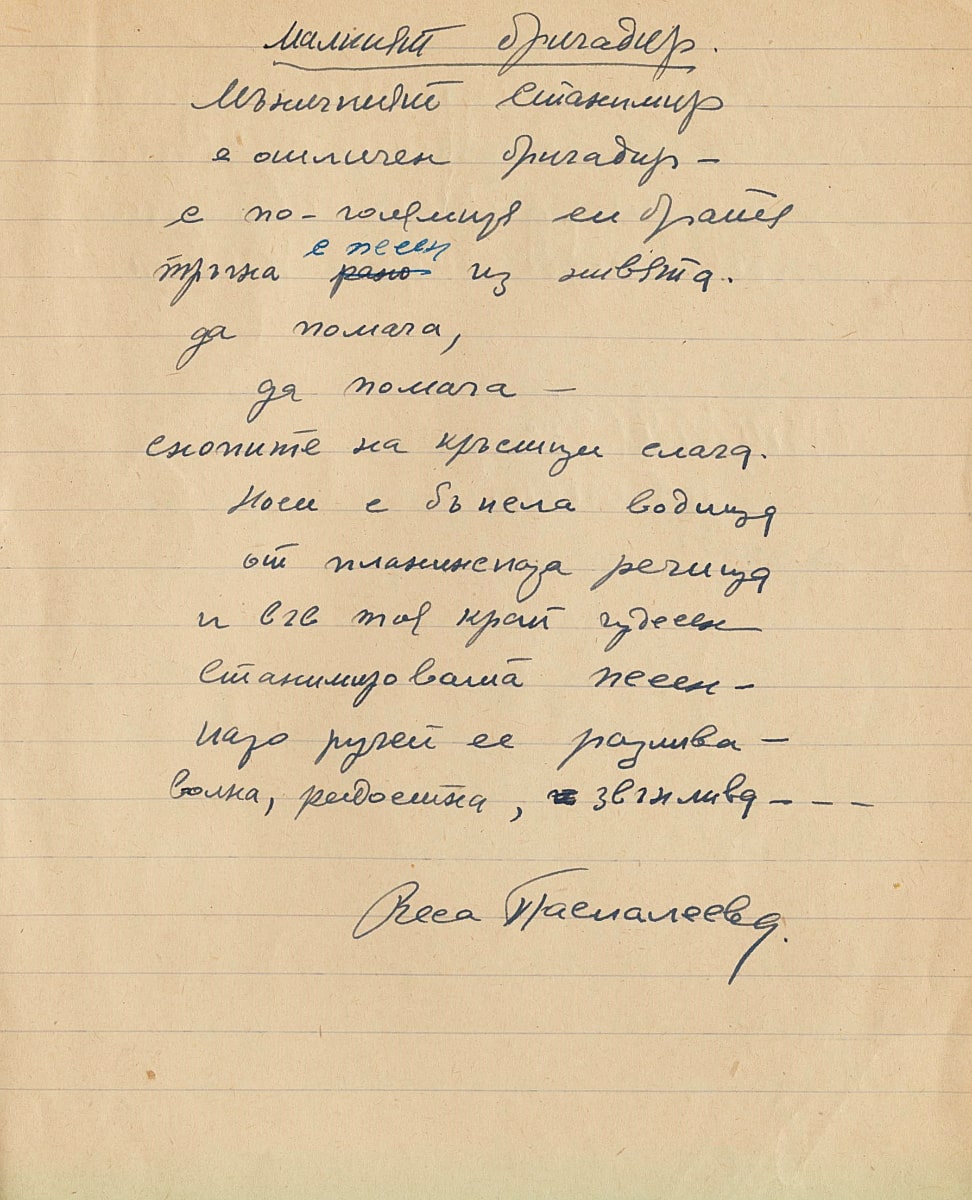 Малкият бригадир.
Мъничкият Станимир
е отличен бригадир –
с по-големия си братя
тръгна с песен рано из нивята.
да помага,
да помага –
снопите на кръстци слага.
Носи с бъкела водица
от планинска речица
и във тоя край чудесен
Станимировата песен –
като ручей се разлива –
волна, радостна, звънлива – – –
Веса Паспалеева.